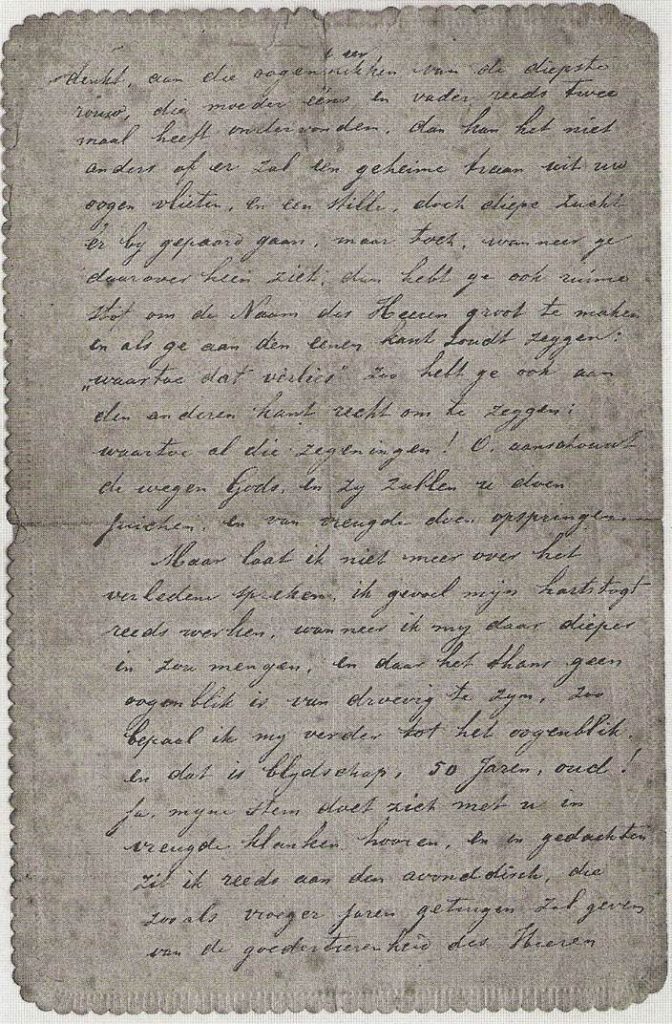 weer
denkt, aan die oogenblikken van de diepste
rouw, die moeder ééns en vader reeds twee
maal heeft ondervonden, dan kan het niet
anders of er zal een geheime traan uit uw
oogen vlieten, en een stille, doch diepe zucht
er by gepaard gaan, maar toch, wanneer ge
daarover heen ziet, dan hebt ge ook ruime
stof om de Naam des Heeren groot te maken
en als ge aan den eenen kant zoudt zeggen:
„waartoe dat verlies" zoo hebt ge ook aan
den anderen kant recht om te zeggen:
waartoe al die zegeningen! O. aanschouwt
de wegen Gods, en zy zullen u doen
juichen, en van vreugde doen opspringen
Maar laat ik niet meer over het
verledene spreken, ik gevoel mijn hartstogt
reeds werken, wanneer ik my daar dieper
in zou mengen, en daar het thans geen
oogenblik is van droevig te zyn, zoo
bepaal ik my verder tot het oogenblik
en dat is blydschap, 50 Jaren, oud!
Ja, myne stem doet zich met u in
vreugde klanken hooren, en in gedachten
zit ik reeds aan den avonddisch, die
zooals vroeger jaren getuigen zal geven
van de goedertierenheid des Heeren